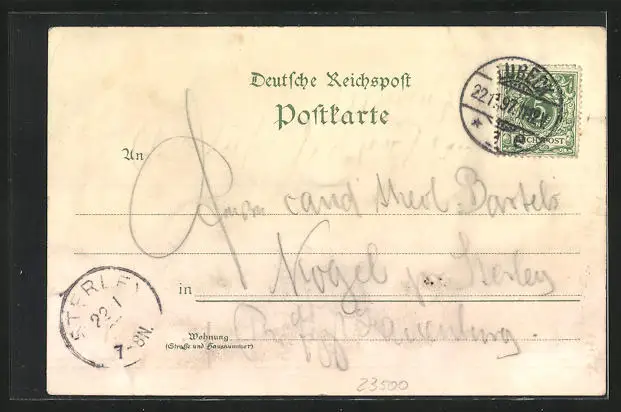 Deutsche Reichspost
Postkarte
LÜBECK
22.1.97.
5
REICHSPOST
An
cand theol. Bartels
in
Kogel per Sterley
Lauenburg.
Wohnung
(Straße und Hausnummer)
STERLEY
22 1
7-8N.
23500